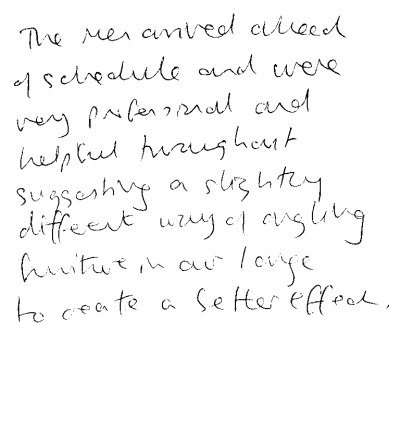 The men arrived ahead
of schedule and were
very professional and
helpful throughout
suggesting a slightly
different way of angling
furniture in our lounge
to create a better effect.